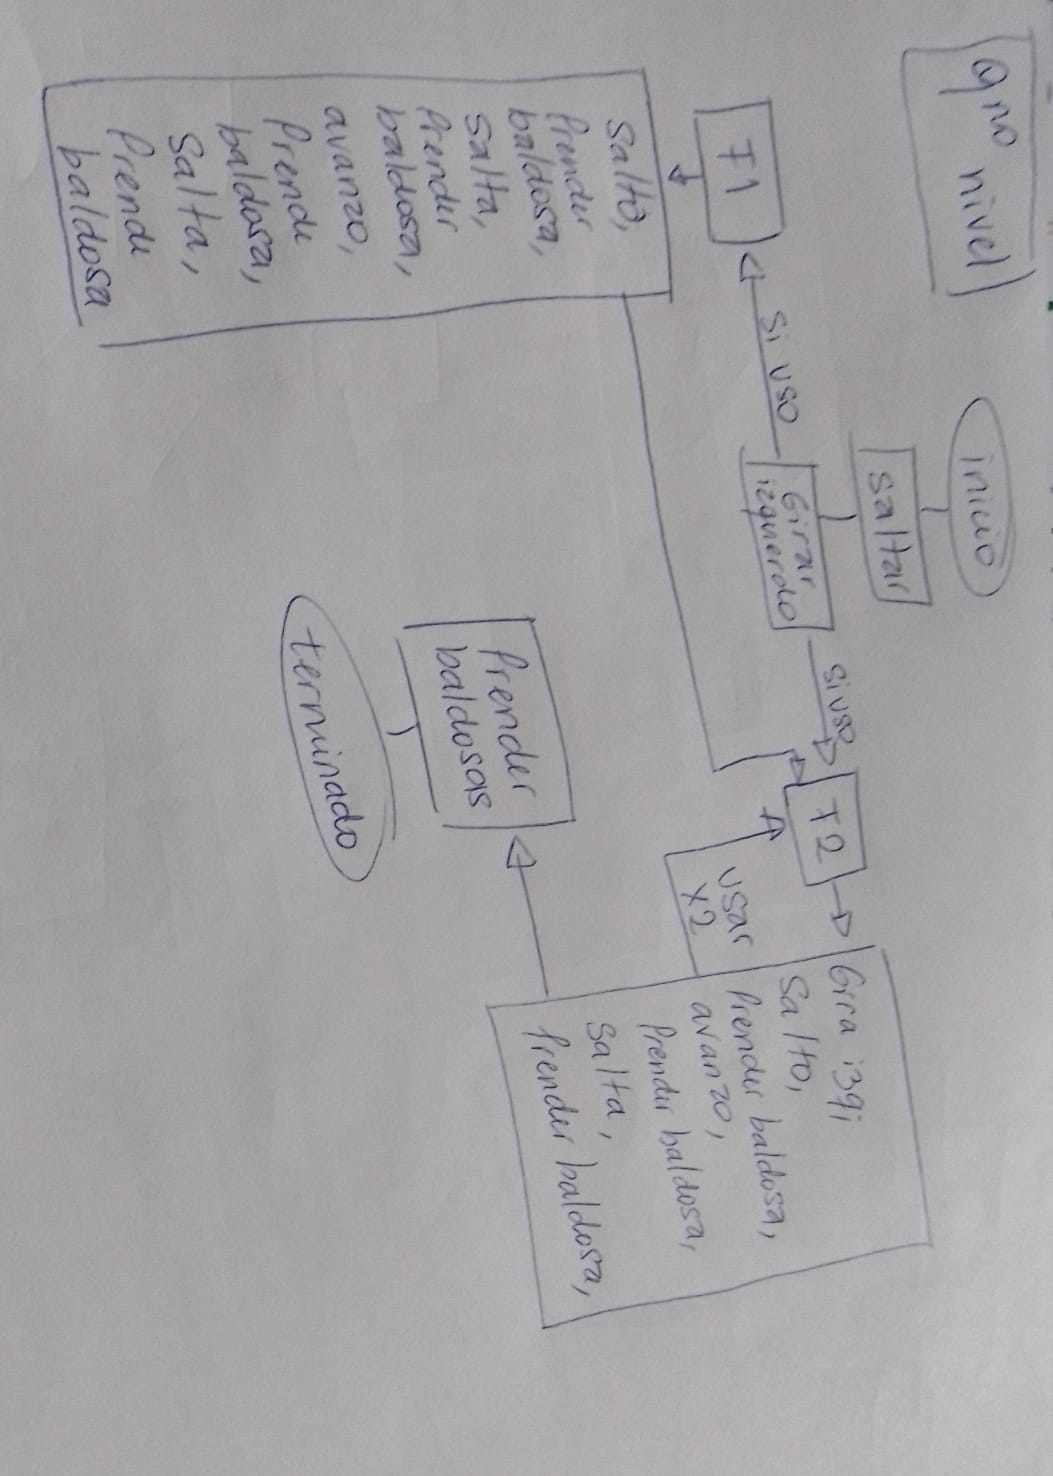 9no nivel
inicio
saltar
Girar
izquierdo
si uso
F1
Salto,
Prender
baldosa,
salta,
Prender
baldosa,
avanzo,
Prende
baldosa,
Salta,
Prende
baldosa
si uso
F2
Gira izq;
Salto,
Prender baldosa,
avanzo,
Prender baldosa,
Salta,
Prender baldosa,
usar
x2
Prender
baldosas
terminado